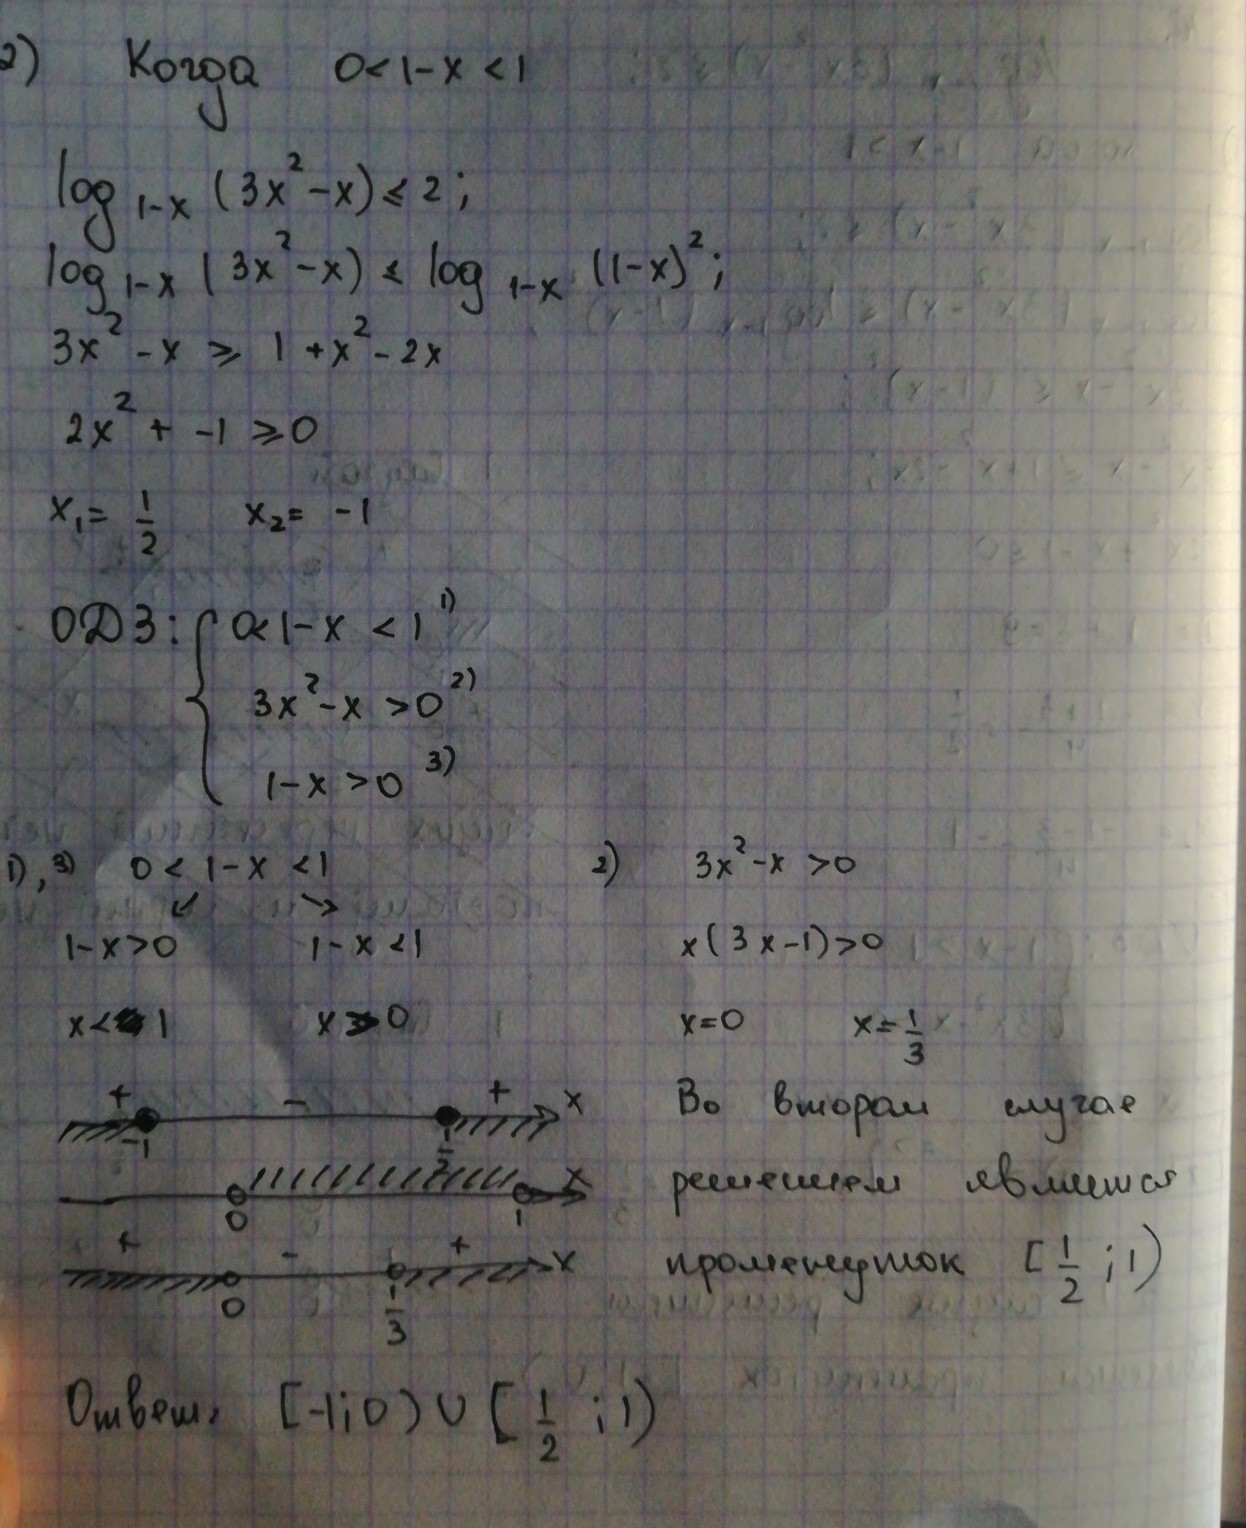 2) Когда 0<1-x<1
log_{1-x} (3x²-x) ≤ 2;
log_{1-x} (3x²-x) ≤ log_{1-x} (1-x)²;
3x² - x ⩾ 1 + x² - 2x
2x² + -1 ⩾ 0
x₁ = 1/2 x₂ = -1
ОДЗ: { 0<1-x<1 ¹⁾
3x²-x >0 ²⁾
1-x >0 ³⁾
1), 3) 0<1-x<1 2) 3x²-x >0
1-x>0 1-x<1 x(3x-1)>0
x<1 x>0 x=0 x=1/3
+ - + x
-1 1/2
x
0 1
+ - + x
0 1/3
Во втором случае
решением является
промежуток [1/2 ; 1)
Ответ: [-1;0) ∪ [1/2 ; 1)